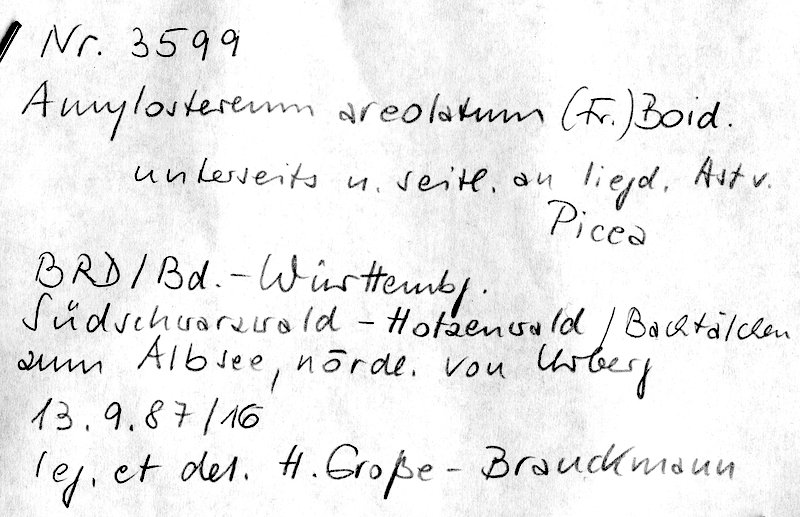 Nr. 3599
Amylostereum areolatum (Fr.) Boid.
unterseits u. seitl. an liegd. Ast v.
Picea
BRD/Bd.-Württembg.
Südschwarzwald - Hotzenwald / Bachtälchen
zum Albsee, nördl. von Urberg
13.9.87/16
leg. et det. H. Große-Brauckmann